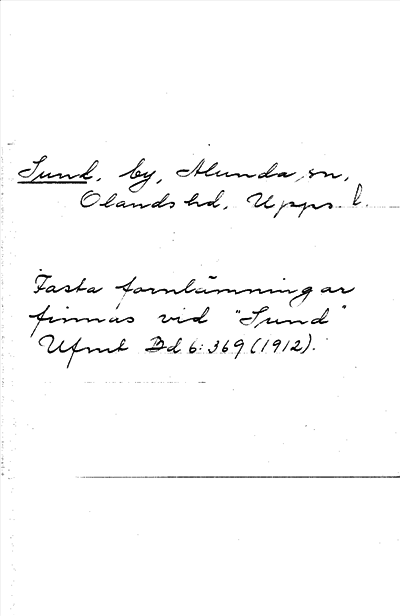 Sund, by, Alunda sn,
Olands hd, Upps. l.
Fasta fornlämningar
finnas vid "Sund"
Ufmt Bd 6:369 (1912).